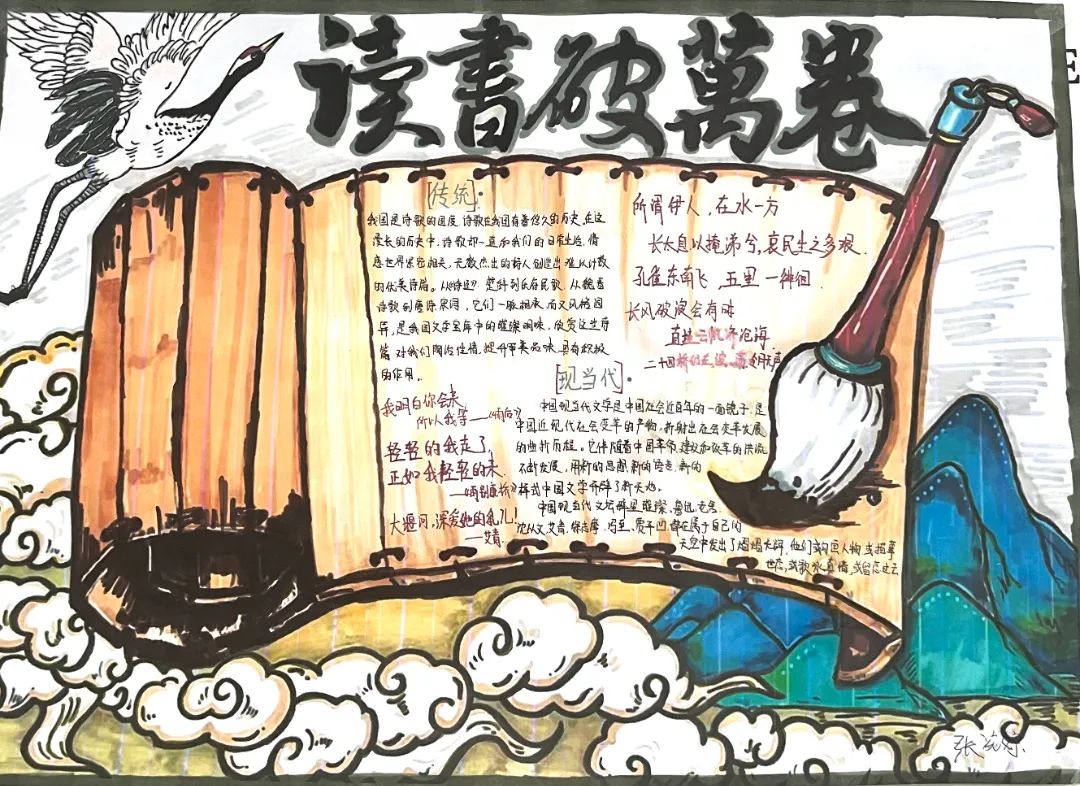 读书破萬卷
[传统]·
我国是诗歌的国度,诗歌在我国有着悠久的历史,在这
漫长的历史中,诗歌却一直和我们的日常生活、情
感世界紧密相关,无数杰出的诗人创造出难以计数
的优美诗篇。从《诗经》楚辞到乐府民歌,从魏晋
诗歌到唐诗宋词,它们一脉相承而又风格迥
异,是我国文学宝库中的璀璨明珠。欣赏这些诗
篇,对我们陶冶性情,提升审美品味,具有积极
的作用。
所谓伊人,在水一方
长太息以掩涕兮,哀民生之多艰.
孔雀东南飞,五里一徘徊
长风破浪会有时
直挂云帆济沧海
二十四桥仍在,波心荡冷月无声
我明白你会来
所以我等——《雨巷》
轻轻的我走了,
正如我轻轻的来.
——《再别康桥》
大堰河,深爱她的乳儿!
——艾青
[现当代]·
中国现当代文学是中国社会近百年的一面镜子,是
中国近现代社会变革的产物,折射出社会变革发展
的曲折历程。它伴随着中国革命、建设和改革的洪流
不断发展,用新的思想、新的语言、新的
样式中国文学开辟了新天地。
中国现当代文坛群星璀璨,鲁迅、老舍
沈从文、艾青、徐志摩、冯至、贾平凹都在属于自己的
天空中发出了熠熠光辉,他们或勾画人物,或描摹
世态,或歌咏真情,或留恋过云
张